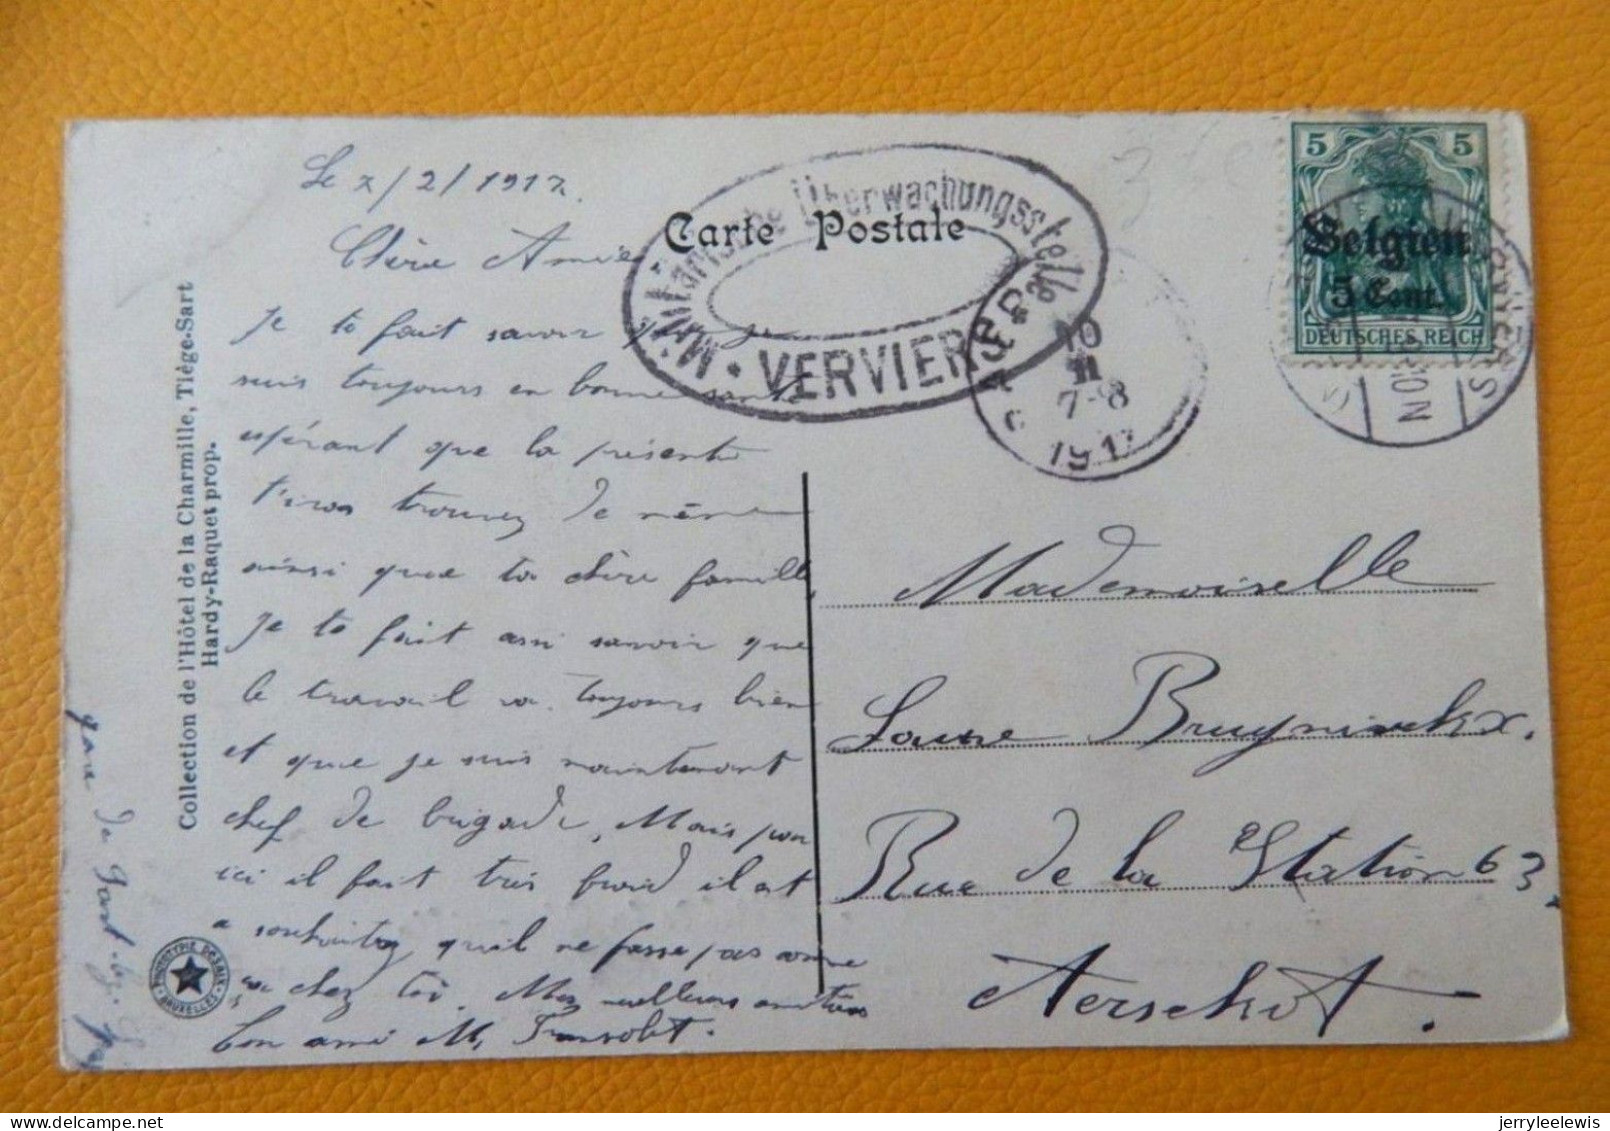 Le 7/2/1917.
Chère Amie
Je te fait savoir que je
suis toujours en bonne santé
espérant que la présente
t'iras trouvez de même
ainsi que ta chère famille,
Je te fait assi savoir que
le travail va toujours bien
et que je suis maintenant
chef de brigade, Mais pour
ici il fait très froid il est
a souhaitez qu'il ne fasse pas comme
ça chez toi. Mes meilleurs amitiés
ton ami M.
gare de
Collection de l'Hôtel de la Charmille, Tiège-Sart
Hardy-Raquet prop.
PHOTOTYPIE DESAIX
BRUXELLES
Carte Postale
Militärische Überwachungsstelle
* VERVIERS
10
II
7-8
1917
5 5
Belgien
5 Cent.
DEUTSCHES REICH
10N
Mademoiselle
Bruyninckx.
Rue de la Station 63.
Aerschot.
jerryleelewis